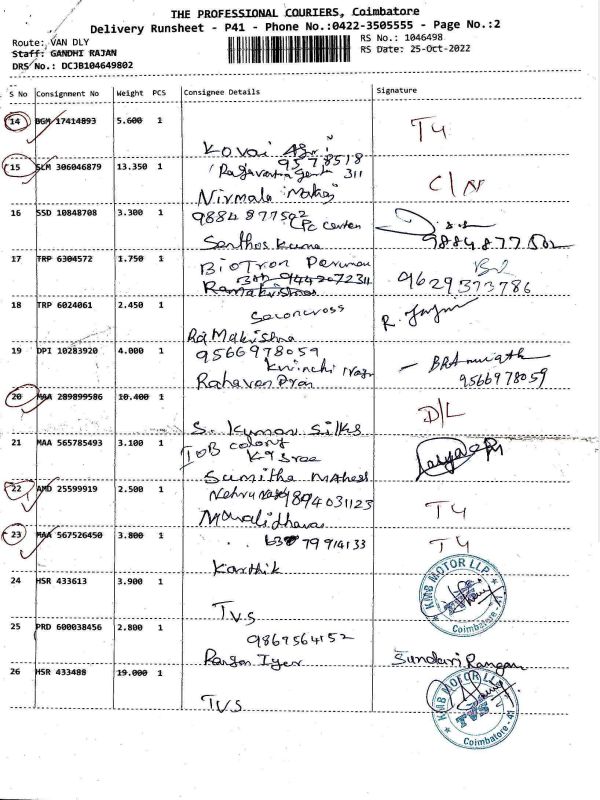 THE PROFESSIONAL COURIERS, Coimbatore
Delivery Runsheet - P41 - Phone No.:0422-3505555 - Page No.:2
Route: VAN DLY
RS No.: 1046498
Staff: GANDHI RAJAN
RS Date: 25-Oct-2022
DRS No.: DCJB104649802
S No Consignment No Weight PCS Consignee Details Signature
14 BGM 17414893 5.600 1 T4
Kovai Agri
15 SLM 306046879 13.350 1 9578518
311
C/N
Nirmala Mahes
16 SSD 10848708 3.300 1 9884877502
CPC Center
Santhos Kuma 9884877502
17 TRP 6304572 1.750 1 BIOTron Perumal
9442072311 9629373786
Ramakrishnas
18 TRP 6024061 2.450 1
R.
Ra Makrishna
19 DPI 10283920 4.000 1 9566978059
Kurinchi Nagr
9566978059
Rahavan Pran
20 MAA 289899586 10.400 1 D/L
S. Kumar Silks
21 MAA 565785493 3.100 1 IOB colony
K9 Sree
Sumitha Mahesh
22 AMD 25599919 2.500 1 Nehru Nagr 9894031123
T4
23 MAA 567526450 3.800 1 79914133 T4
Karthik
24 HSR 433613 3.900 1 KMB MOTOR LLP
Coimbatore-41
T.V.S
25 PRD 600038456 2.800 1 9867564152
Rangan Iyer Sundari Rangan
26 HSR 433488 19.000 1 KMB MOTOR LLP
TVS
Coimbatore-41
T.V.S